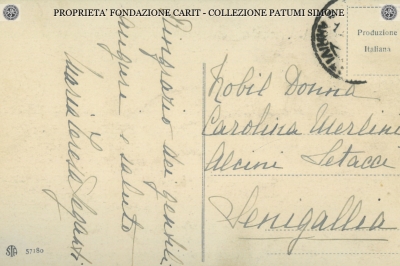 PROPRIETA' FONDAZIONE CARIT - COLLEZIONE PATUMI SIMONE
Produzione
Italiana
Ringrazio dei gentili
auguri e saluto
Maria Teresa
Nobil Donna
Carolina Merlini
Alcini Setacci
Senigallia
STA 57180